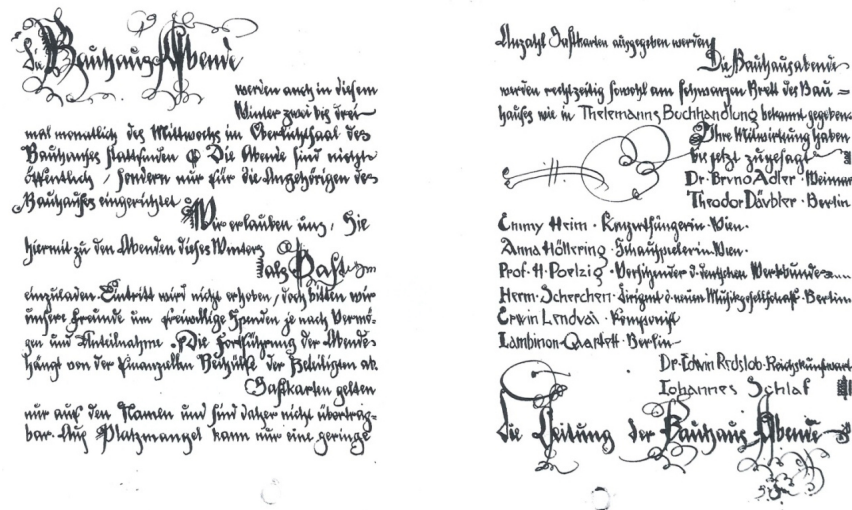 Die Bauhaus Abende
werden auch in diesem
Winter zwei bis drei-
mal monatlich des Mittwochs im Oberlichtsaal des
Bauhauses stattfinden Die Abende sind nicht
öffentlich / sondern nur für die Angehörigen des
Bauhauses eingerichtet
Wir erlauben uns, Sie
hiermit zu den Abenden dieses Winters
als Gast
einzuladen. Eintritt wird nicht erhoben / doch bitten wir
unsere Freunde um freiwillige Spenden je nach Vermö-
gen und Anteilnahme. Die Fortführung der Abende
hängt von der finanziellen Beihülfe der Beteiligten ab.
Gastkarten gelten
nur auf den Namen und sind daher nicht übertrag-
bar. Aus Platzmangel kann nur eine geringe
Anzahl Gastkarten ausgegeben werden
Die Bauhausabende
werden rechtzeitig sowohl am schwarzen Brett des Bau =
hauses wie in Thelemanns Buchhandlung bekannt gegeben.
Ihre Mitwirkung haben
bis jetzt zugesagt
Dr. Bruno Adler · Weimar
Theodor Däubler · Berlin
Emmy Heim · Konzertsängerin · Wien.
Anna Höllering · Schauspielerin · Wien.
Prof. H. Poelzig · Vorsitzender d. deutschen Werkbundes
Herm. Scherchen · Dirigent d. neuen Musikgesellschaft · Berlin
Erwin Lendvai · Komponist
Lambinon-Quartett · Berlin
Dr. Edwin Redslob · Reichskunstwart
Johannes Schlaf
Die Leitung der Bauhaus Abende